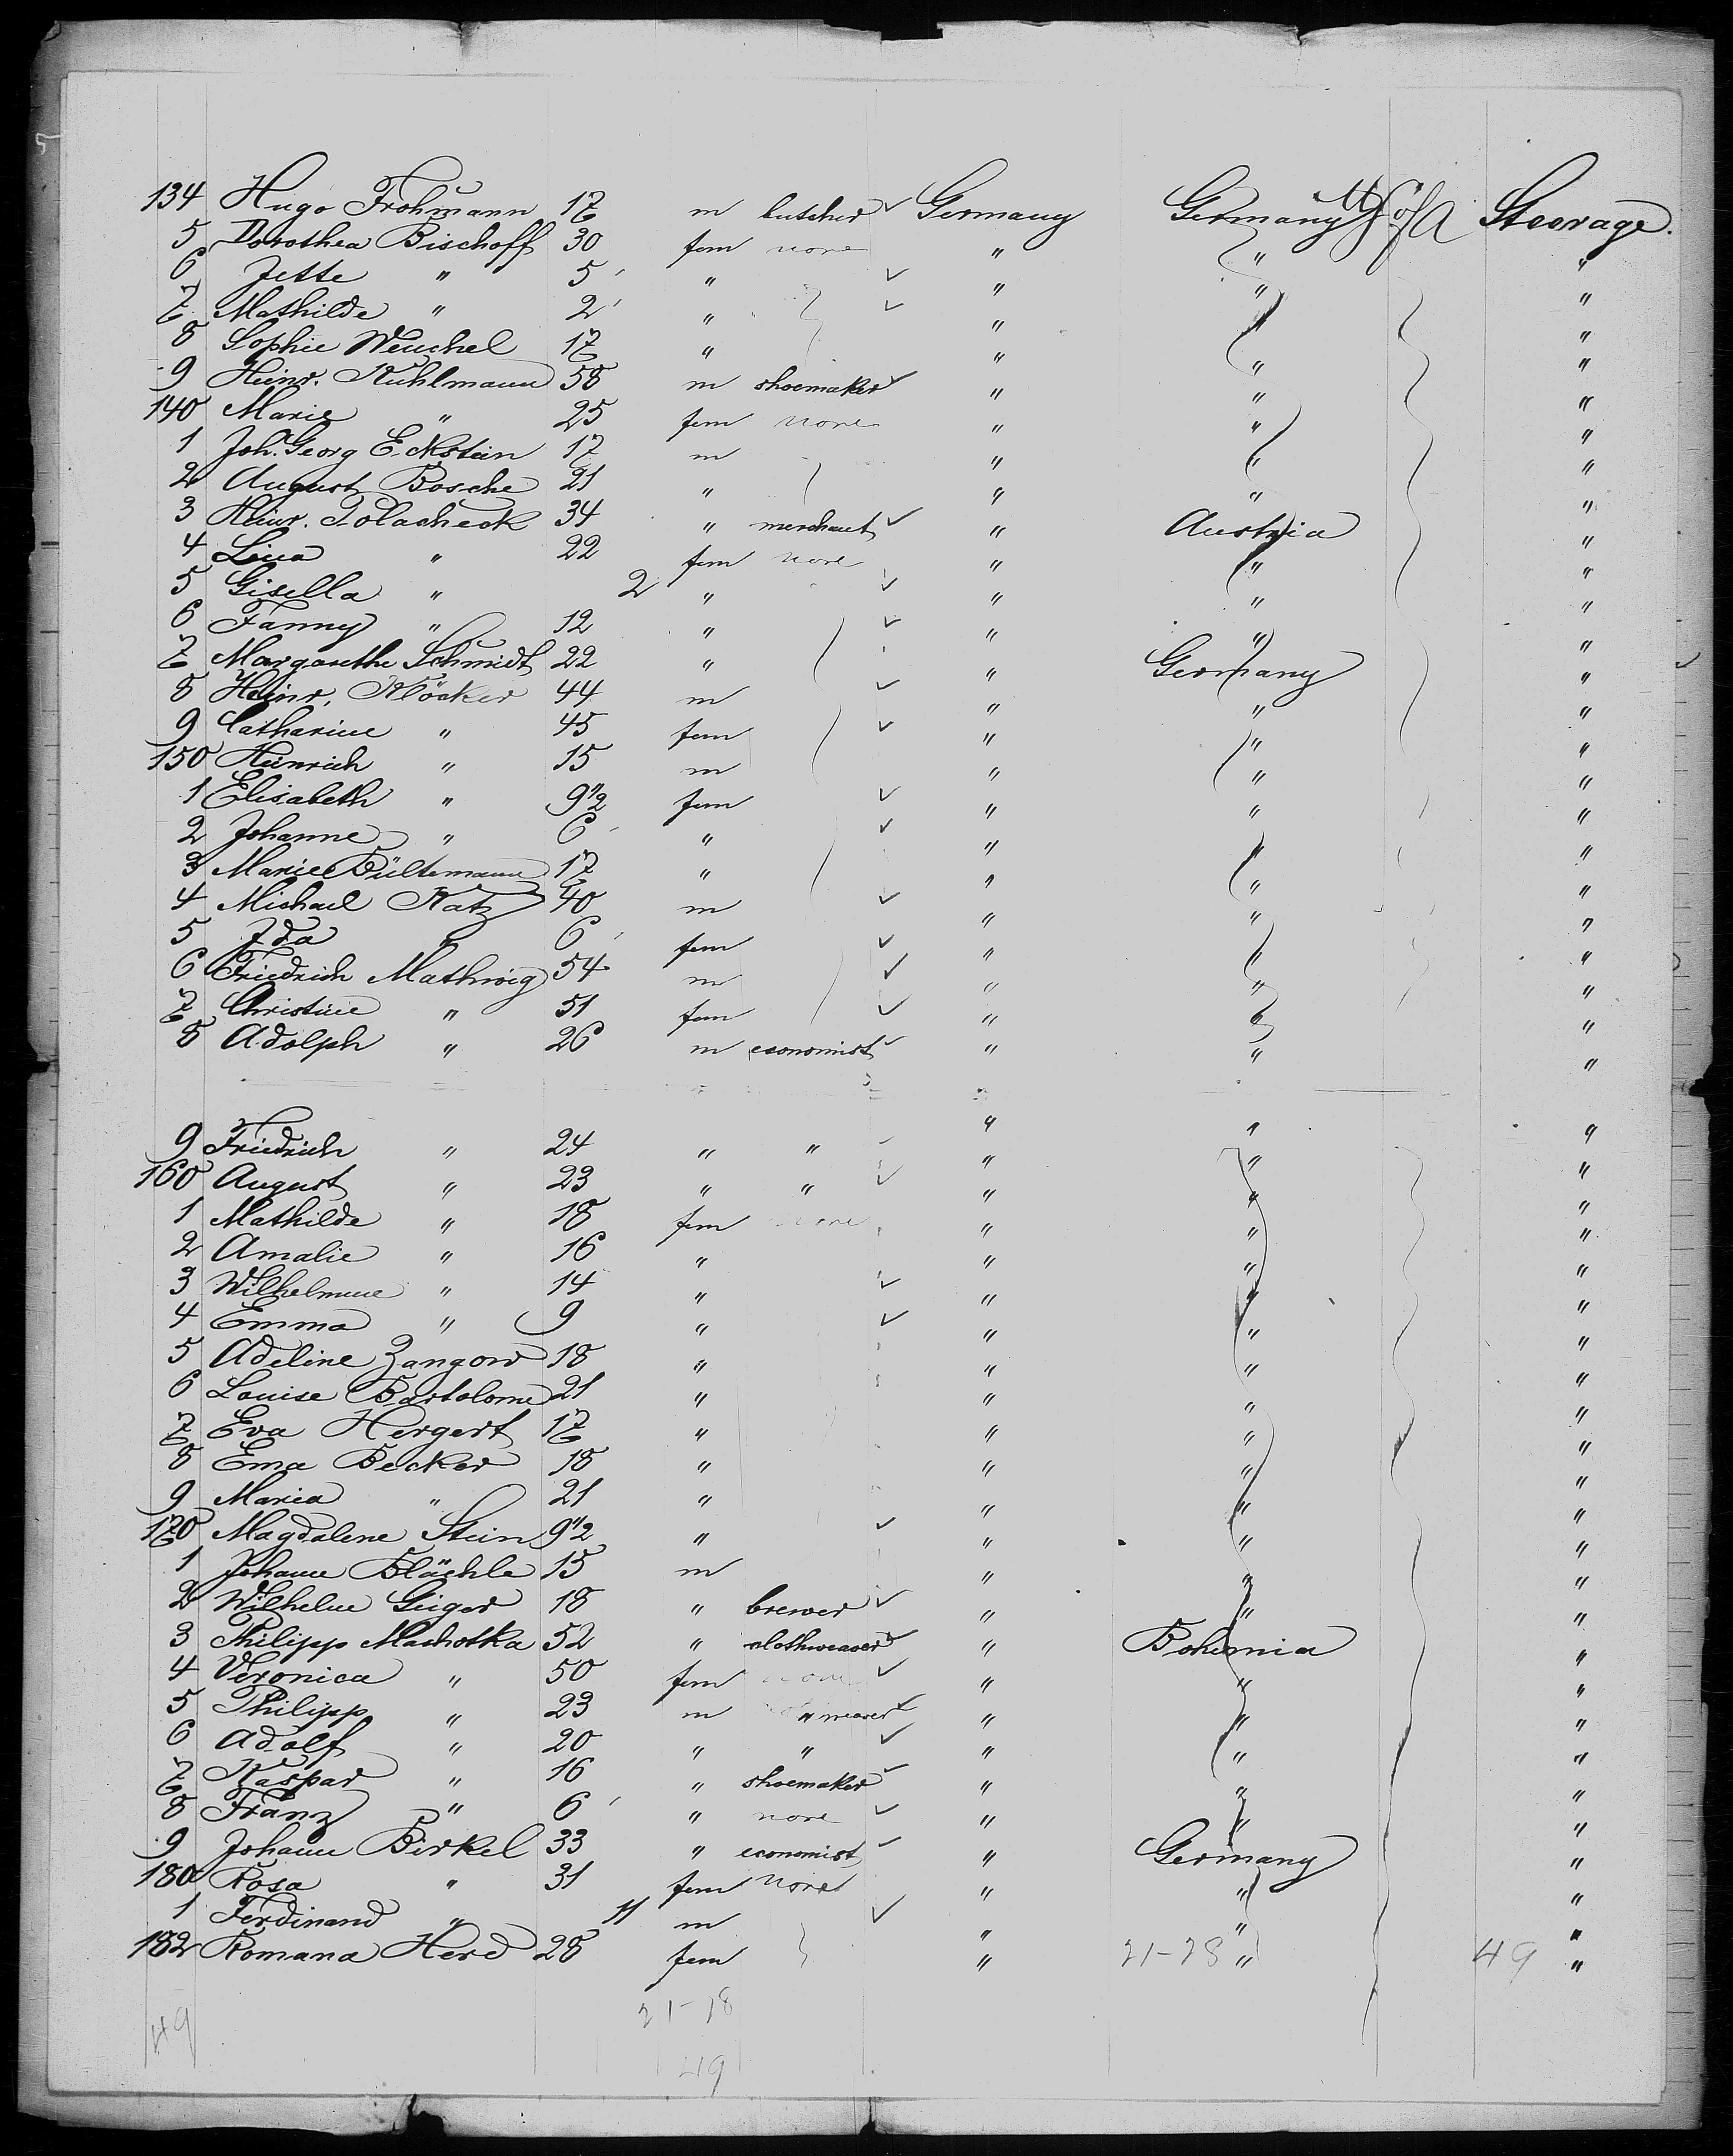 134 Hugo Frohmann 17 m butcher ✓ Germany Germany U S of A Steerage.
5 Dorothea Bischoff 30 fem none " " "
6 Jette " 5 " ✓ " " "
7 Mathilde " 2 " ✓ " " "
8 Sophie Weuchel 17 " " " "
9 Heinr. Kuhlmann 58 m shoemaker ✓ " " "
140 Marie " 25 fem none " " "
1 Joh. Georg Eckstein 17 m " " "
2 August Bosche 21 " " " "
3 Heinr. Polacheck 34 " merchant ✓ " Austria "
4 Lina " 22 fem none " " "
5 Gisella " 2 " ✓ " " "
6 Fanny " 12 " ✓ " " "
7 Margarethe Schmidt 22 " " Germany "
8 Heinr. Klöcker 44 m ✓ " " "
9 Catharine " 45 fem ✓ " " "
150 Heinrich " 15 m " " "
1 Elisabeth " 9 1/2 fem ✓ " " "
2 Johanne " 6 " ✓ " " "
3 Marie Bültemann 17 " " " "
4 Michael Katz 40 m ✓ " " "
5 Ida " 6 fem ✓ " " "
6 Friedrich Mathwig 54 m ✓ " " "
7 Christine " 51 fem ✓ " " "
8 Adolph " 26 m economist ✓ " " "
9 Friedrich " 24 " " " " "
160 August " 23 " " ✓ " " "
1 Mathilde " 18 fem none " " "
2 Amalie " 16 " " " "
3 Wilhelmine " 14 " ✓ " " "
4 Emma " 9 " ✓ " " "
5 Adeline Zangow 18 " " " "
6 Louise Bartolome 21 " " " "
7 Eva Hergert 17 " " " "
8 Ema Becker 18 " " " "
9 Maria " 21 " " " "
170 Magdalene Stein 9 1/2 " ✓ " " "
1 Johann Blächle 15 m " " "
2 Wilhelm Geiger 18 " brewer ✓ " " "
3 Philipp Machotka 52 " clothweaver ✓ " Bohemia "
4 Veronica " 50 fem none ✓ " " "
5 Philipp " 23 m " weaver ✓ " " "
6 Adolf " 20 " " ✓ " " "
7 Kaspar " 16 " shoemaker ✓ " " "
8 Franz " 6 " none ✓ " " "
9 Johann Birkel 33 " economist ✓ " Germany "
180 Rosa " 31 fem none " " "
1 Ferdinand " 11 m ✓ " " "
182 Romana Herd 28 fem " 21-28 " 49 "
49 21-28
49